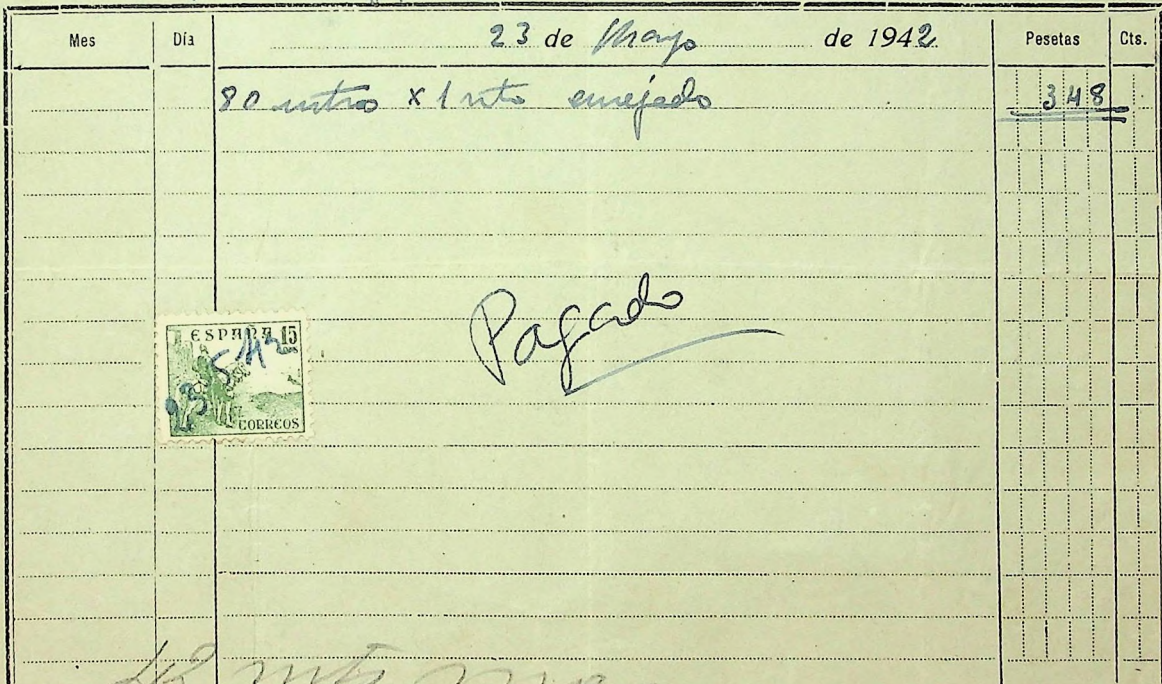 Mes Día 23 de Mayo de 1942 Pesetas Cts.
80 metros x 1 mto enrejado 348
Pagado
ESPAÑA 15
23 5 42
CORREOS